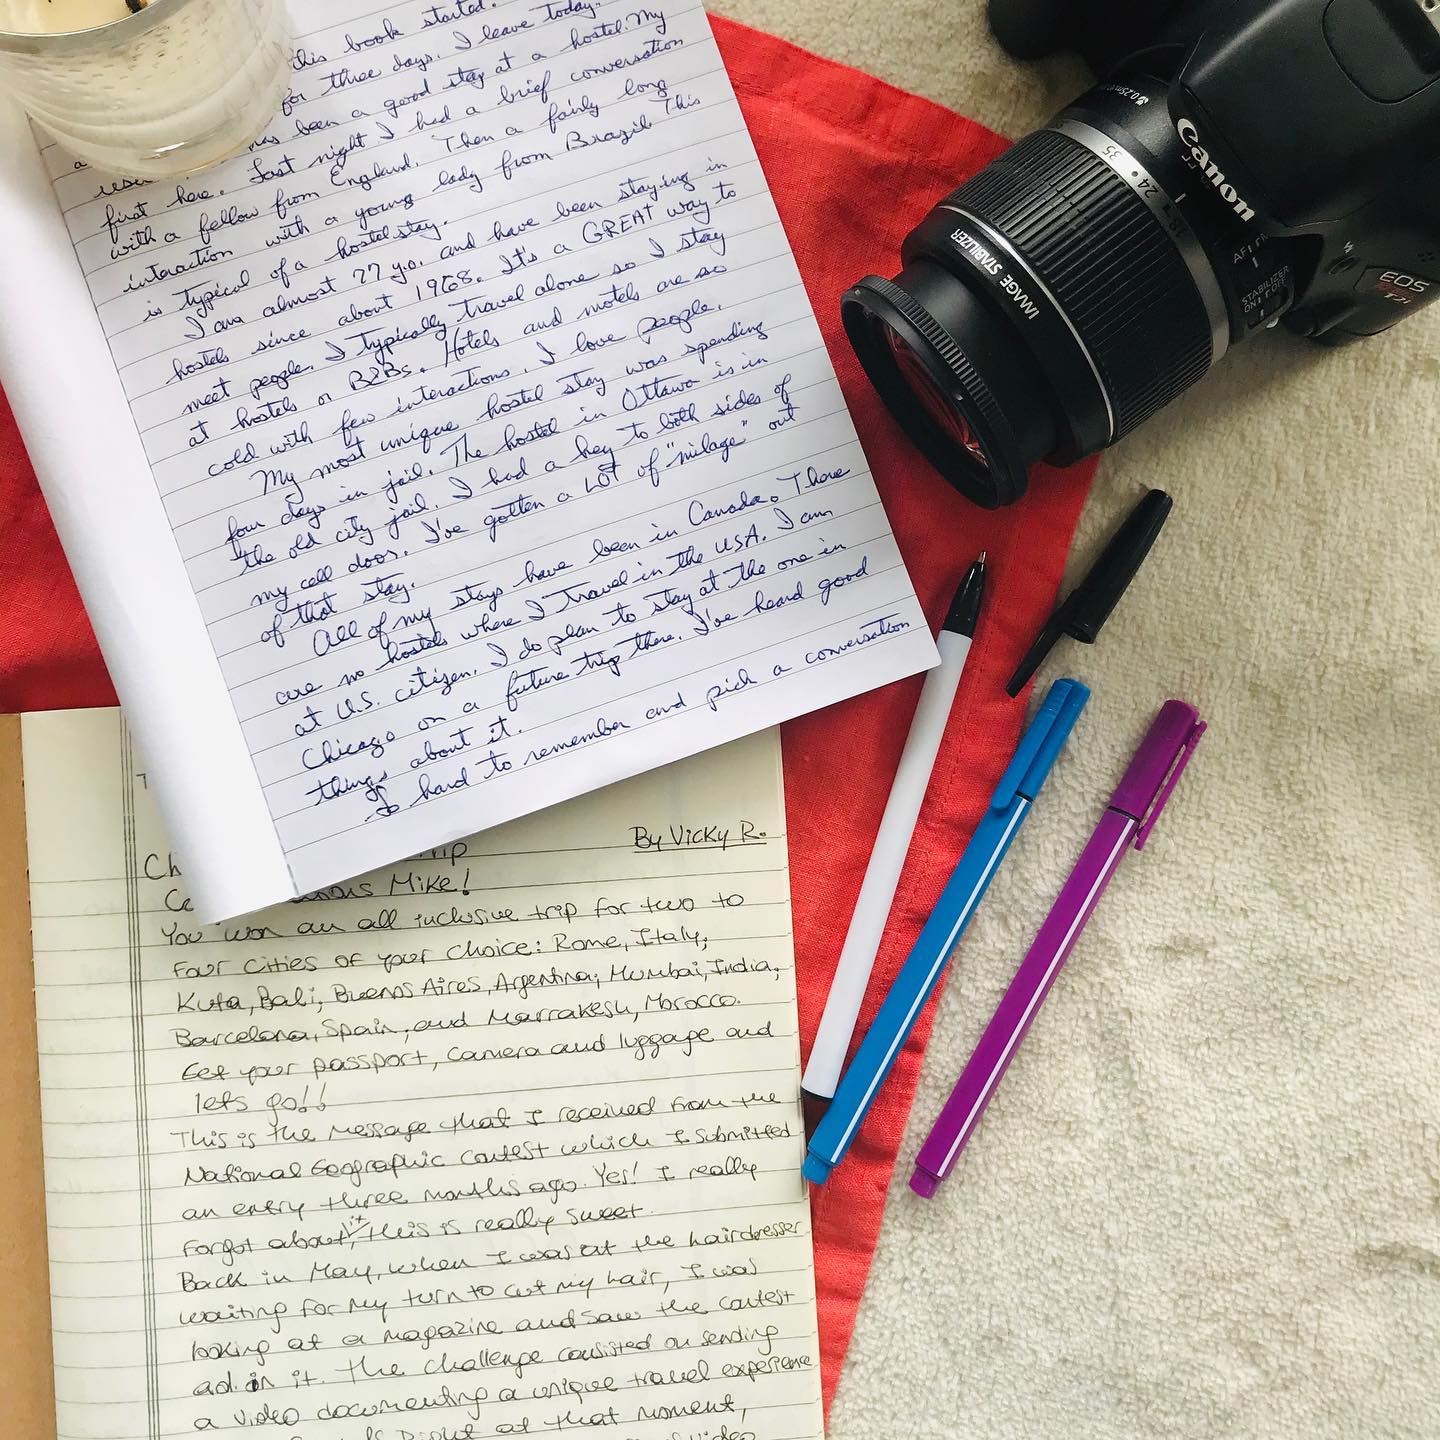 this book started.
for three days. I leave today.
has been a good stay at a hostel. My
first here. Last night I had a brief conversation
with a fellow from England. Then a fairly long
interaction with a young lady from Brazil. This
is typical of a hostel stay.
I am almost 77 y.o. and have been staying in
hostels since about 1968. It's a GREAT way to
meet people. I typically travel alone so I stay
at hostels or B2Bs. Hotels and motels are so
cold with few interactions. I love people.
My most unique hostel stay was spending
four days in jail. The hostel in Ottawa is in
the old city jail. I had a key to both sides of
my cell door. I've gotten a LOT of "milage" out
of that stay.
All of my stays have been in Canada. There
are no hostels where I travel in the USA. I am
at U.S. citizen. I do plan to stay at the one in
Chicago on a future trip there. I've heard good
things about it.
So hard to remember and pick a conversation
By Vicky R.
Mike!
You won an all inclusive trip for two to
Four Cities of your choice: Rome, Italy;
Kuta, Bali; Buenos Aires, Argentina; Mumbai, India;
Barcelona, Spain; and Marrakesh, Morocco.
Get your passport, camera and luggage and
lets go!!
This is the message that I received from the
National Geographic contest which I submitted
an entry three months ago. Yes! I really
Forgot about it, this is really sweet.
Back in May, when I was at the hairdresser
waiting for my turn to cut my hair, I was
looking at a magazine and saw the contest
ad in it. The challenge consisted on sending
a video documenting a unique travel experience
Right at that moment,
video
Canon
EOS
T2i
IMAGE STABILIZER
0.25m
35
24
18
AF
STABILIZER
ON OFF